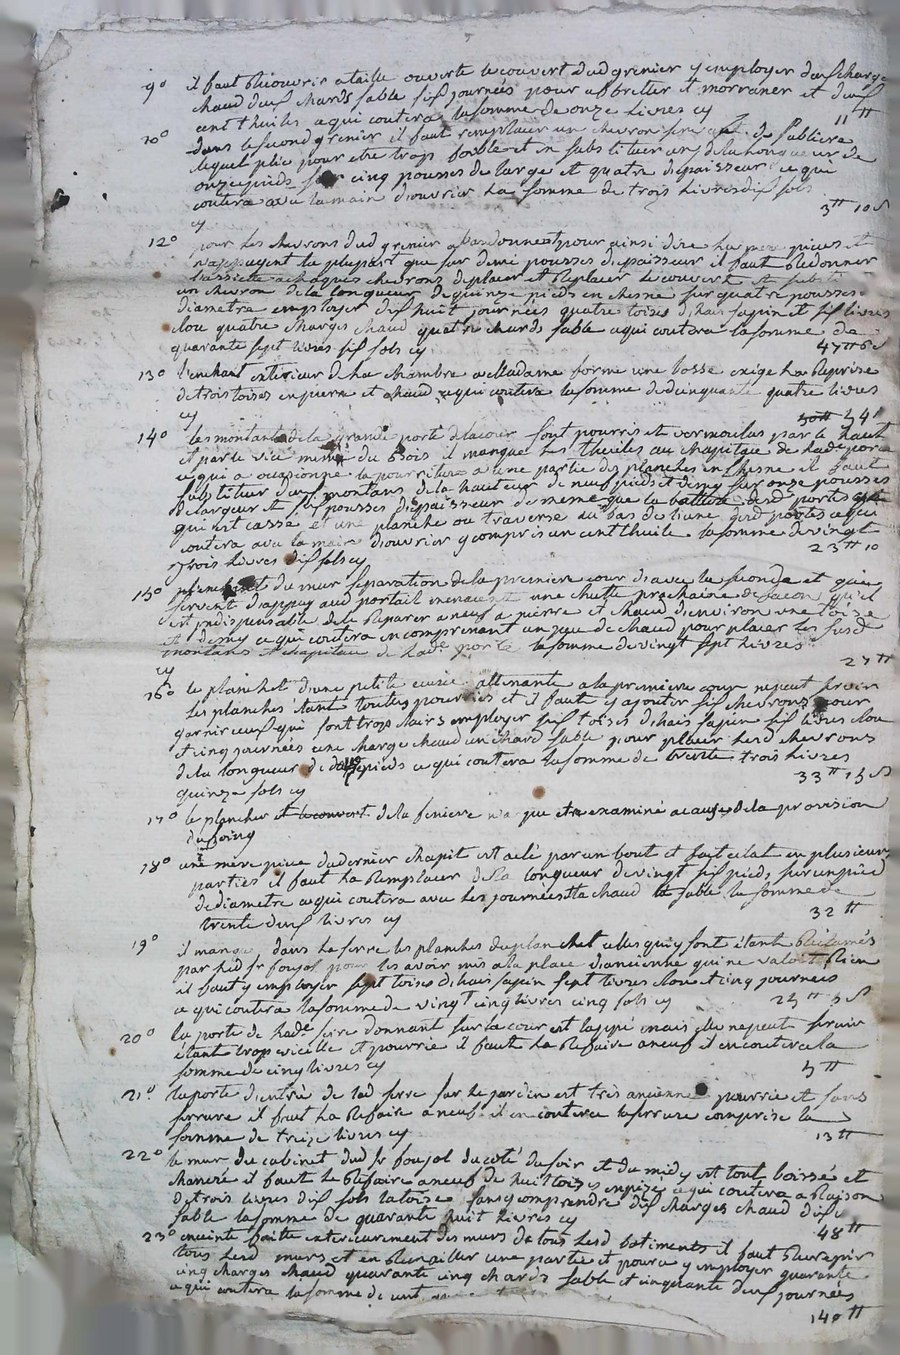 9° il faut Recouvrir a taille ouverte le couvert dud grenier y employer deux charges
chaud deux chards sable six journées pour abbreller et morrainer et deux
cent thuiles ce qui coutera la somme de onze Livres cy 11 ₶
10° dans le second grenier il faut remplacer un chevron de Sabliere
lequel plie pour etre trop foible et en substituer un de la longueur de
onze pieds sur cinq pousses de large et quatre depaisseur ce qui
coutera avec la main d'ouvrier La somme de trois Livres dix sols
cy 3 ₶ 10 s
12° pour les chevrons dud grenier abandonnes pour ainsi dire les mere pieces et
n'appuyent la plupart que sur demi pousses depaisseur il faut Redonner
l'assiette a chaques chevrons deplacer et Replacer le couvert
un chevron de la longueur de quinze pieds en chesne sur quatre pousses
diametre employer dix huit journées quatre toises d'hais sapin et six livres
clou quatre charges chaud quatre chards sable ce qui coutera la somme de
quarante sept livres six sols cy 47 ₶ 6 s
13° l'enchant exterieur de La chambre a Madame forme une bosse exige La Reprise
de trois toises en pierre et chaud ce qui coutera la somme de cinquante quatre livres
cy 54 ₶
14° les montants de la grande porte de la cour sont pourris et vermoulus par le haut
et par le vice meme du Bois il manque Les thuiles au chapiteau de lade porte
ce qui a occazionné la pourriture a une partie des planches en chesne il faut
substituer deux montans de la hauteur de neuf pieds et demy sur onze pousses
de largeur et six pousses depaisseur de meme que la battue desd portes
qui est cassé et une planche ou traverse au bas de l'une desd portes ce qui
coutera avec la main d'ouvrier y compris un cent thuile la somme de vingt
trois Livres dix sols cy 23 ₶ 10
15° du mur separation de la premiere cour d'avec la seconde et qui
servent d'appuy aud portail menacent une chutte prochaine de facon qu'il
est indispensable de le Reparer a neuf a pierre et chaud d'environ une toise
et demy ce qui coutera en comprenant un peu de chaud pour placer les susd
montans et chapiteau de lade porte la somme de vingt sept Livres
cy 27 ₶
16° le planchet d'une petite ecurie attenante a la premiere cour ne peut servir
les planches etant toutes pourries et il faut y ajouter six chevrons pour
garnir ceux qui sont trop clairs employer six toises d'hais sapin six livres clou
et cinq journées une charge chaud un chard sable pour placer lesd chevrons
de la longueur de pieds ce qui coutera la somme de trente trois Livres
quinze sols cy 33 ₶ 15 s
17° le plancher et le couvert de la feniere n'a pu etre examiné a cause de la provision
du foing
18° une mere piece du dernier chapit est aclé par un bout et fait eclat en plusieurs
parties il faut La Remplacer de La longueur de vingt six pieds sur un pied
de diametre ce qui coutera avec Les journées et la chaud et sable la somme de
trente deux livres cy 32 ₶
19° il manque dans La serre les planches du planchet celles qui y sont étant Reclamés
par led sr foujol pour les avoir mis a la place d'ancienne qui ne valoit Rien
il faut y employer sept toises d'hais sapin sept livres clou et cinq journées
ce qui coutera la somme de vingt cinq livres cinq sols cy 25 ₶ 5 s
20° la porte de lade serre donnant sur la cour est lappé mais elle ne peut servir
etant trop vieille et pourrie il faut La Refaire a neuf il en coutera la
somme de cinq livres cy 5 ₶
21° la porte d'entrée de lad serre sur le jardin est tres ancienne pourrie et sans
serrure il faut La Refaire a neuf il en coutera la serrure comprise la
somme de treize livres cy 13 ₶
22° le mur du cabinet dud sr foujol du coté du soir et du midy est tout boissé et
chancré il faut le Refaire a neuf de huit toises ce qui coutera a Raison
de trois livres dix sols la toise sans y comprendre dix charges chaud dix
sable la somme de quarante huit Livres cy 48 ₶
23° enceinte faite exterieurement des murs de tous lesd batiments il faut Recrepir
tous lesd murs et en Remailler une partie et pour ce y employer quarante
cinq charges chaud quarante cinq chards sable et cinquante deux journées
ce qui coutera la somme de cent 140 ₶